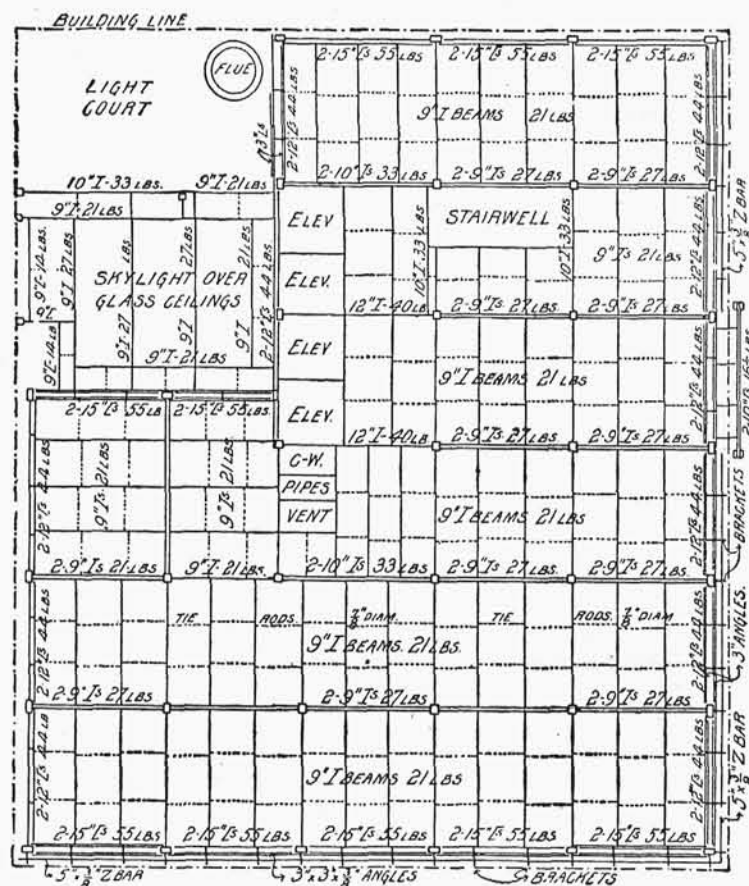 BUILDING LINE
LIGHT
COURT
FLUE
2-15"[s 55 LBS 2-15"[s 55 LBS 2-15"[s 55 LBS
2-12"[s 44 LBS
9"I BEAMS 21 LBS
2-12"[s 44 LBS
3"Ls
2-10"Is 33 LBS 2-9"Is 27 LBS 2-9"Is 27 LBS
10"I-33 LBS. 9"I-21 LBS.
9"I-21 LBS
ELEV
STAIRWELL
10"I-33 LBS
10"I-33 LBS
9"Is 21 LBS
2-12"[s 44 LBS
5"x 3/8" Z BAR
SKYLIGHT OVER
GLASS CEILINGS
9"I-27 LBS.
9"I-27 LBS
27 LBS
9"I
21 LBS
9"I
2-12"[s 44 LBS
ELEV.
12"I-40 LB 2-9"Is 27 LBS 2-9"Is 27 LBS
9"I
9"I-21 LBS
ELEV
9"I BEAMS 21 LBS
2-12"[s 44 LBS
2-15"[s 55 LB 2-15"[s 55 LBS.
ELEV.
12"I-40 LB 2-9"Is 27 LBS 2-9"Is 27 LBS
2-12"[s 44 LBS
9"Is 21 LBS
9"Is 21 LBS
C-W.
PIPES
VENT
9"I BEAMS 21 LBS
2-12"[s 44 LBS
BRACKETS
2-9"Is 21 LBS 9"I-21 LBS. 2-10"Is 33 LBS 2-9"Is 27 LBS 2-9"Is 27 LBS.
2-12"[s 44 LBS
TIE RODS 7/8" DIAM. TIE RODS. 7/8" DIAM
9"I BEAMS. 21 LBS.
2-12"[s 44 LBS
3" ANGLES.
2-9"Is 27 LBS 2-9"Is 27 LBS 2-9"Is 27 LBS
2-12"[s 44 LB
9"I BEAMS 21 LBS
2-12"[s 44 LBS
5"x 3/8" Z BAR
2-15"[s 55 LBS 2-15"[s 55 LBS 2-15"[s 55 LBS 2-15"[s 55 LBS 2-15"[s 55 LBS
5"x 3/8" Z BAR 3"x 3"x 3/8" ANGLES BRACKETS